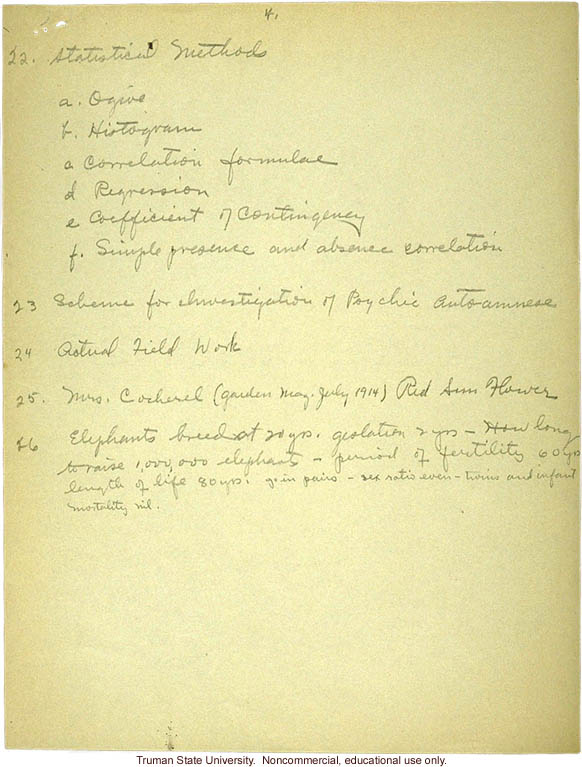 4.
22. Statistical Methods
a. Ogive
b. Histogram
c Correlation formulae
d Regression
e Coefficient of Contingency
f. Simple presence and absence correlation
23 Scheme for Investigation of Psychic Auto-amnese
24 Actual Field Work
25. Mrs. Cockerel (garden Mag. July 1914) Red Sun Flower
26 Elephants breed at 20 yrs. gestation 2 yrs - How long
to raise 1,000,000 elephants - period of fertility 60 yrs
length of life 80 yrs. go in pairs - sex ratio even - twins and infant
mortality nil.
Truman State University. Noncommercial, educational use only.